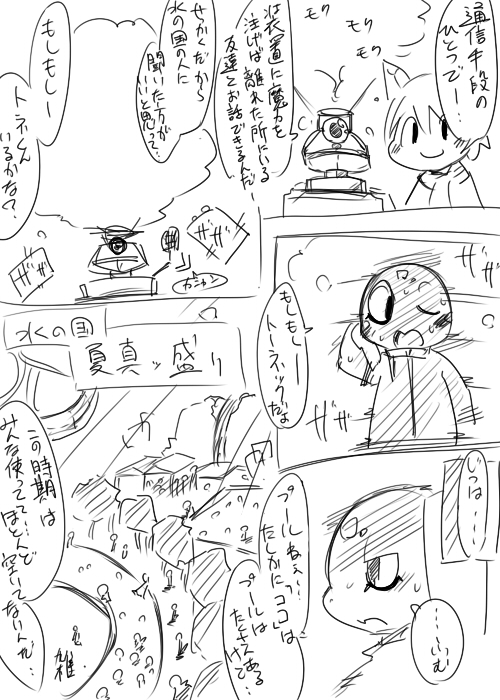 通信手段の
ひとつでー…
モク
モク
モク
装置に魔力を
注げば離れた所にいる
友達とお話できるんだー
せっかくだから
水の国の人に
聞いた方が
いいと思って…
もしもしー
トネくん
いるかな？
ザザ
ザザ
もしもしー
トーネックだよ
ザザ
ザザ
じつは…
…いつむ
水の国
夏真ッ盛り
プールねぇ…
たしかに「ココ」は
プールは
たくさんある
けど…
この時期は
みんな使ってて…
ほとんど
空いてないんだ…
雑